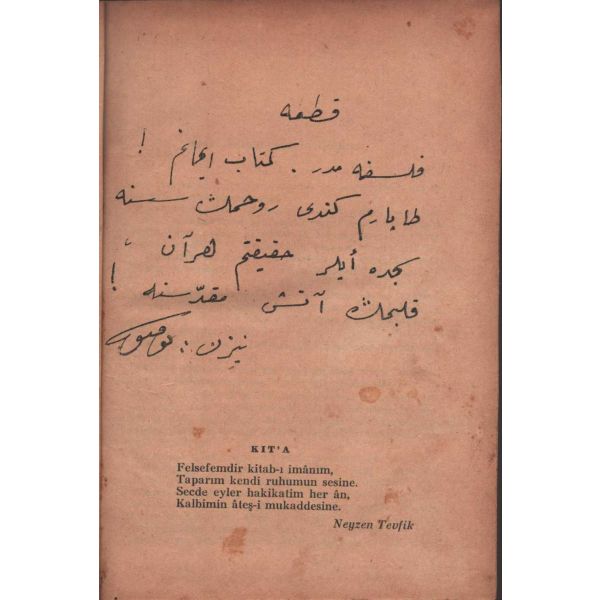 قطعه
فلسفه مدر. کتاب ایمانم !
طاپارم کندی روحمڭ سسنه
سجده أیلر حقیقتم هر آن ،
قلبمڭ آتش مقدّسنه !
نیزن : توفیق
KIT'A
Felsefemdir kitab-ı imânım,
Taparım kendi ruhumun sesine.
Secde eyler hakikatim her ân,
Kalbimin âteş-i mukaddesine.
Neyzen Tevfik